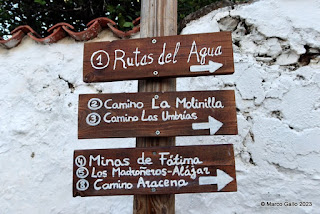 ① Rutas del Agua
② Camino La Molinilla
③ Camino Las Umbrías
④ Minas de Fátima
⑤ Los Madroñeros-Alájar
⑧ Camino Aracena
© Marco Gallo 2023